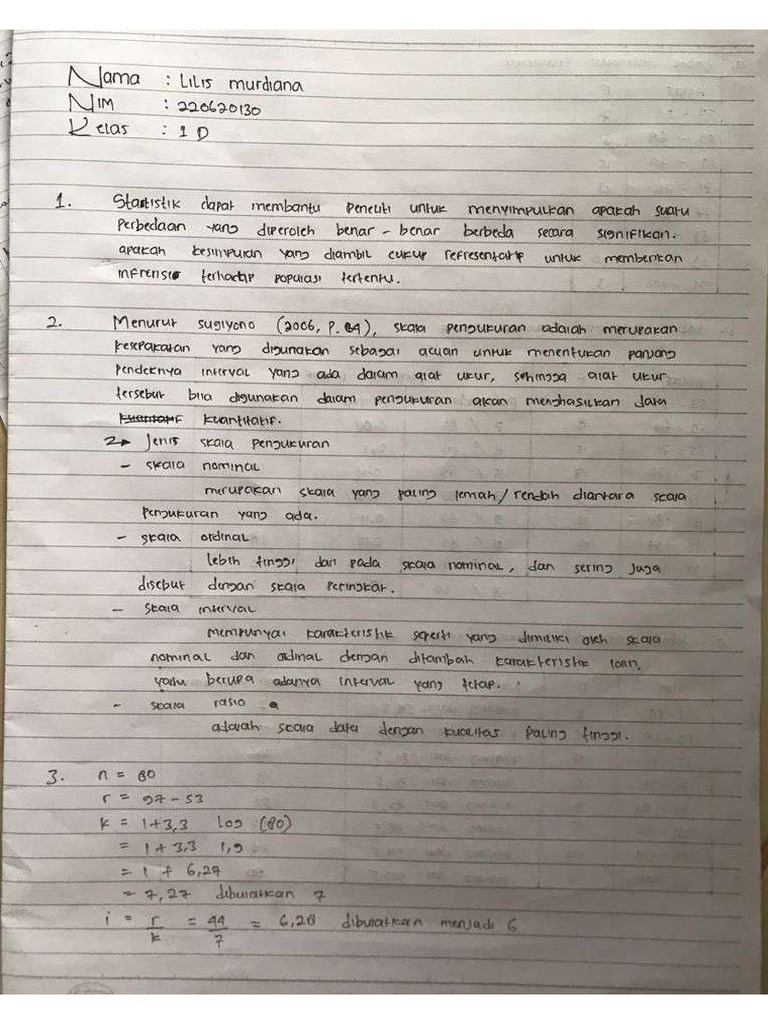 Nama : Lilis murdiana
NIM : 220620130
Kelas : 1 D
1. Statistik dapat membantu peneliti untuk menyimpulkan apakah suatu
perbedaan yang diperoleh benar - benar berbeda secara signifikan.
apakah kesimpulan yang diambil cukup refresentatif untuk memberikan
infrensi terhadap populasi tertentu.
2. Menurut sugiyono (2006, P. 84), skala pengukuran adalah merupakan
kesepakatan yang digunakan sebagai acuan untuk menentukan panjang
pendeknya interval yang ada dalam alat ukur, sehingga alat ukur
tersebut bila digunakan dalam pengukuran akan menghasilkan data
kuantitatif.
2 Jenis skala pengukuran
- skala nominal
merupakan skala yang paling lemah / rendah diantara skala
pengukuran yang ada.
- skala ordinal
lebih tinggi dari pada skala nominal, dan sering juga
disebut dengan skala peringkat.
- skala interval
mempunyai karakteristik seperti yang dimiliki oleh skala
nominal dan ordinal dengan ditambah karakteristik lain,
yaitu berupa adanya interval yang tetap.
- skala rasio
adalah skala data dengan kualitas paling tinggi.
3. n = 80
r = 97 - 53
k = 1 + 3,3 log (80)
= 1 + 3,3 1,9
= 1 + 6,27
= 7,27 dibulatkan 7
i = r/k = 44/7 = 6,28 dibulatkan menjadi 6